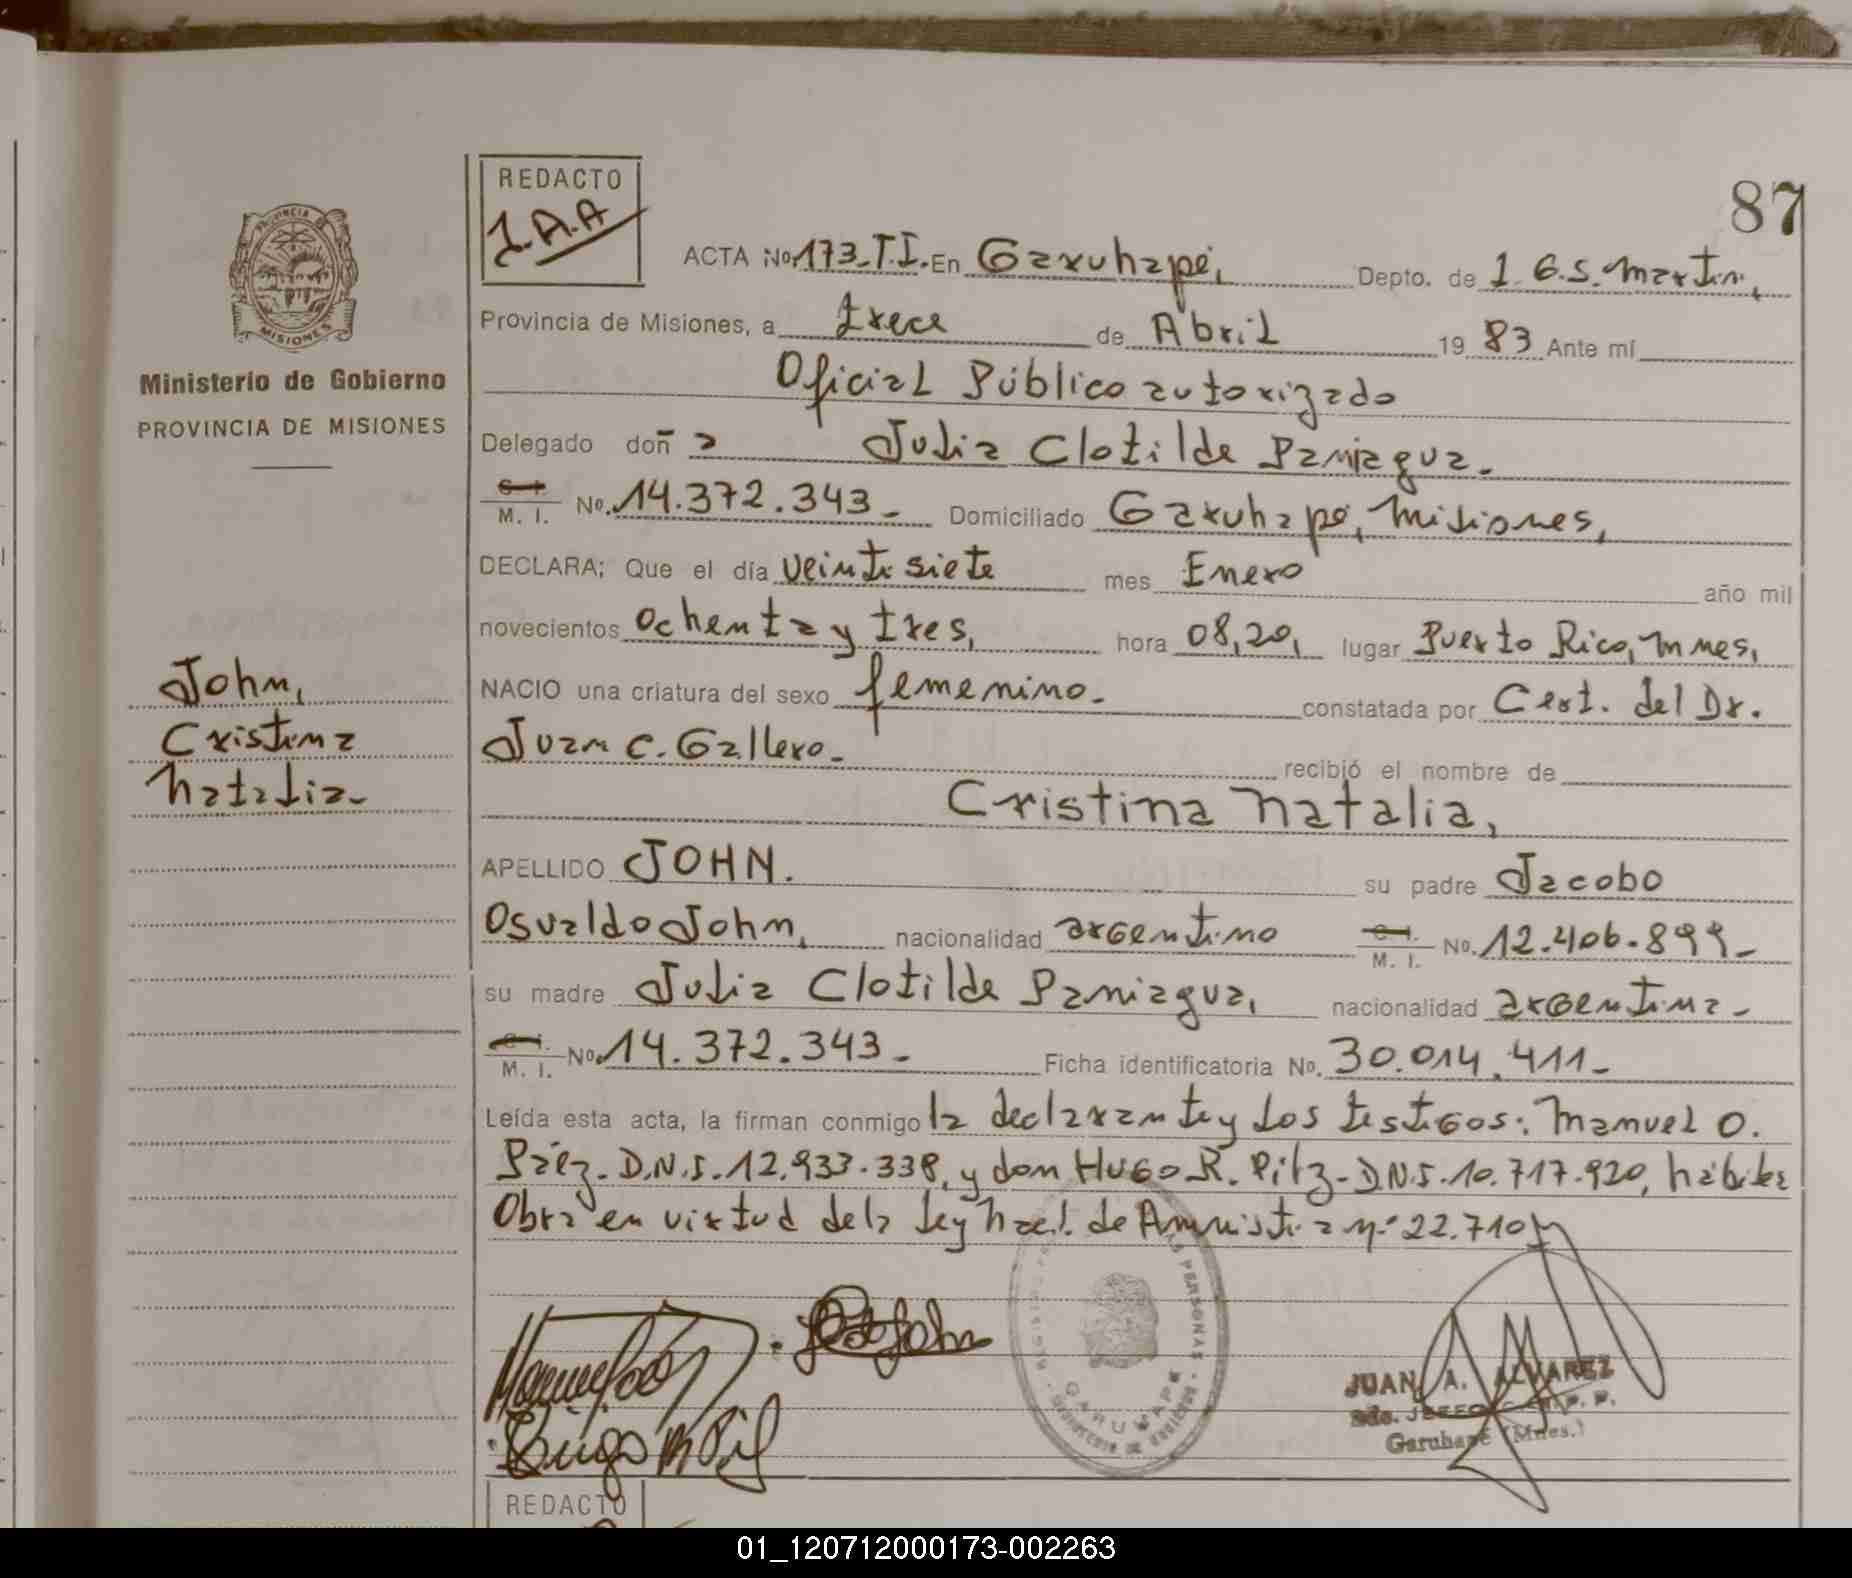 87
REDACTO
J.A.A
ACTA No. 173-T.I. En Garuhapé, Depto. de L.G.S. Martín,
Provincia de Misiones, a trece de Abril 1983 Ante mí
Oficial Público autorizado
Delegado doña Julia Clotilde Paniagua.
C. I. M. I. No. 14.372.343- Domiciliado Garuhapé, Misiones,
DECLARA; Que el día veintisiete mes Enero año mil
novecientos ochenta y tres, hora 08,20, lugar Puerto Rico, Mnes,
NACIO una criatura del sexo femenino- constatada por Cert. del Dr.
Juan C. Gallero- recibió el nombre de
Cristina Natalia,
APELLIDO JOHN. su padre Jacobo
Osvaldo John, nacionalidad argentino C. I. M. I. No. 12.406.899-
su madre Julia Clotilde Paniagua, nacionalidad argentina-
C. I. M. I. No. 14.372.343- Ficha identificatoria No. 30.014.411-
Leída esta acta, la firman conmigo la declarante y los testigos: Manuel O.
Páez-D.N.I. 12.933.338, y don Hugo R. Pilz-D.N.I. 10.717.920, hábiles
Obra en virtud de la Ley Nacl. de Amnistía nº 22.710
Ministerio de Gobierno
PROVINCIA DE MISIONES
John,
Cristina
Natalia-
PROVINCIA DE
MISIONES
John
GARUHAPE
JUAN A. ALVAREZ
Garuhapé (Mnes.)
REDACTO
01_120712000173-002263